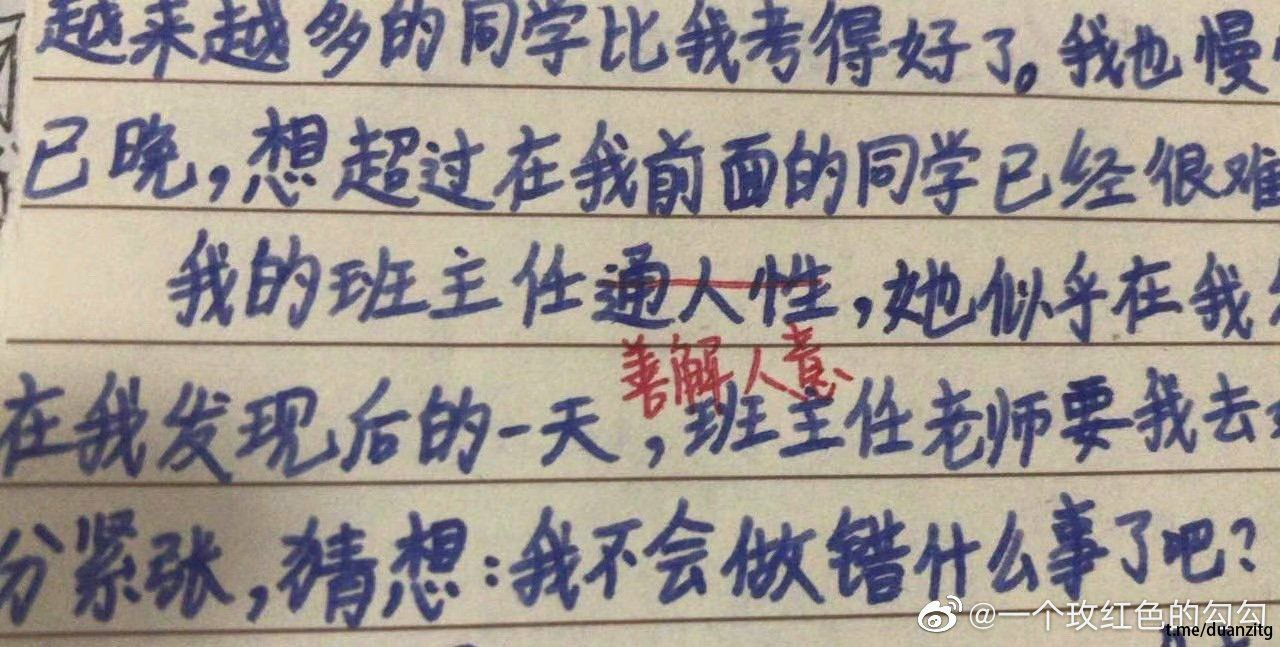 越来越多的同学比我考得好了。我也慢
已晚,想超过在我前面的同学已经很难
我的班主任通人性,她似乎在我
善解人意
在我发现后的一天,班主任老师要我去
分紧张,猜想:我不会做错什么事了吧?
@一个玫红色的勾勾
t.me/duanzitg